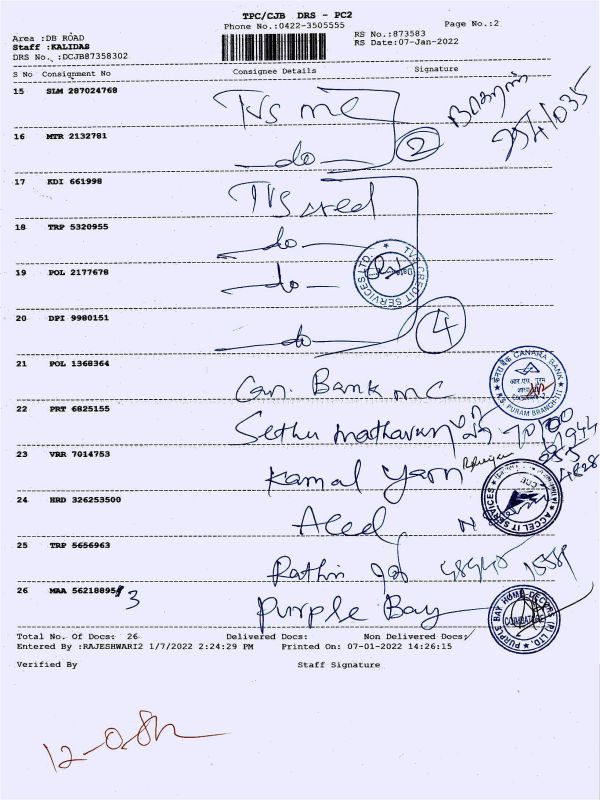 TPC/CJB DRS - PC2
Phone No.:0422-3505555
Page No.:2
Area :DB ROAD
RS No.:873583
Staff :KALIDAS
RS Date:07-Jan-2022
DRS No. :DCJB87358302
S No Consignment No Consignee Details Signature
15 SLM 287024768 TVS mc
16 MTR 2132781 -do- 2
17 KDI 661998 TVS
18 TRP 5320955 -do-
19 POL 2177678 -do-
TVS CREDIT SERVICES LTD.
20 DPI 9980151 -do- 4
21 POL 1368364 Can. Bank mc
CANARA BANK
R.S. PURAM BRANCH
22 PRT 6825155 Sethu madhavan
23 VRR 7014753 Kamal Yarn
24 HRD 326253500
ACCEL IT SERVICES
25 TRP 5656963 Rathin
26 MAA 562188953 Purple Bay
PURPLE BAY HOME DECORS (P) LTD.
COIMBATORE
Total No. Of Docs: 26 Delivered Docs: Non Delivered Docs:
Entered By :RAJESHWARI2 1/7/2022 2:24:29 PM Printed On: 07-01-2022 14:26:15
Verified By Staff Signature